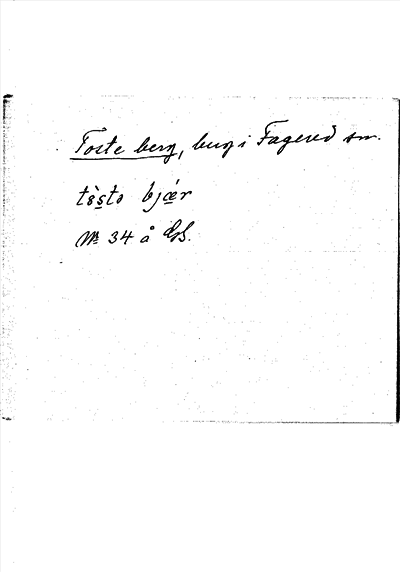 Toste berg, berg i Fagered sn.
tòsto bjær
Nr 34 å GS.